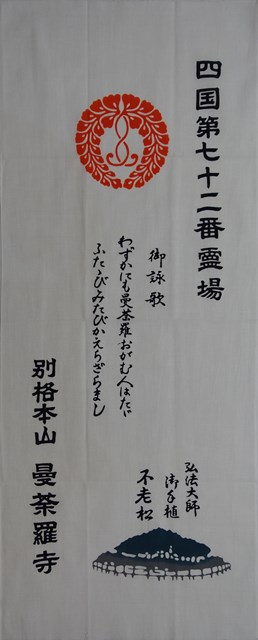 四国第七十二番霊場
御詠歌
わずかにも曼荼羅おがむ人はたゞ
ふたゝびみたびかえらざらまし
弘法大師
御手植
不老松
別格本山 曼荼羅寺